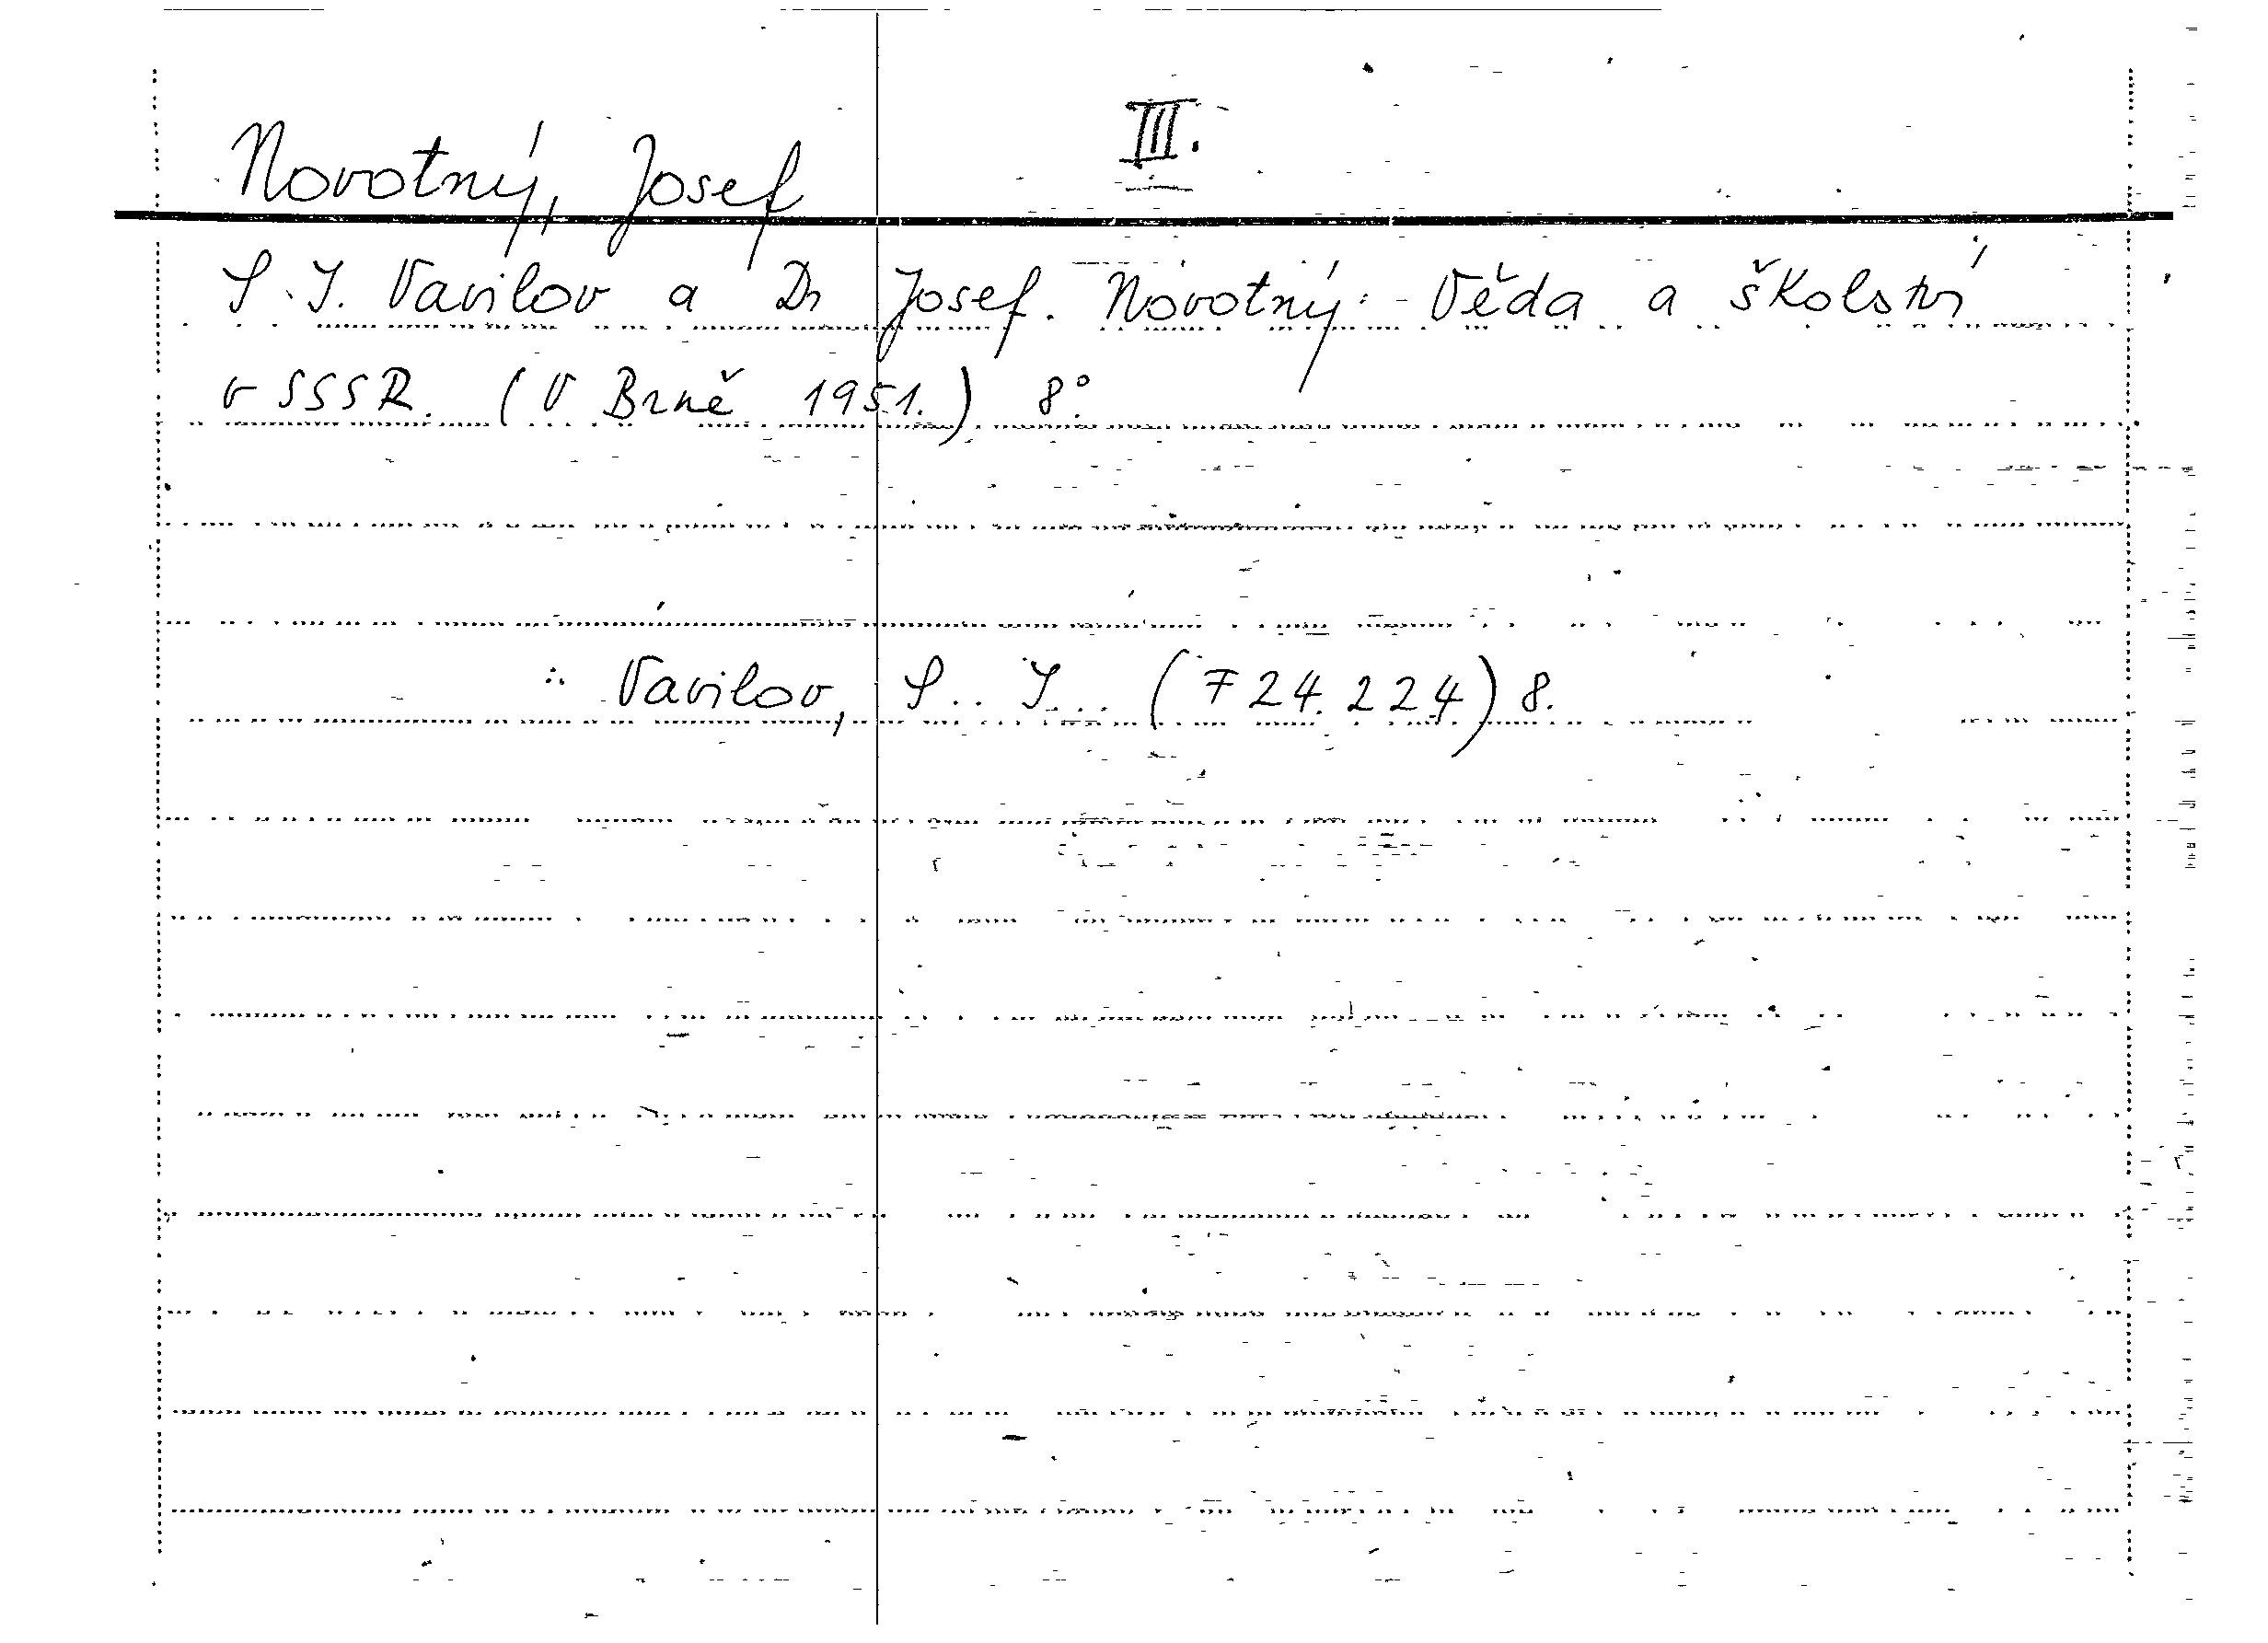 III.
Novotný, Josef
S. I. Vavilov a Dr Josef Novotný: Věda a školství
v SSSR. (V Brně 1951.) 8°.
∴ Vavilov, S.. I... (724.224) 8.